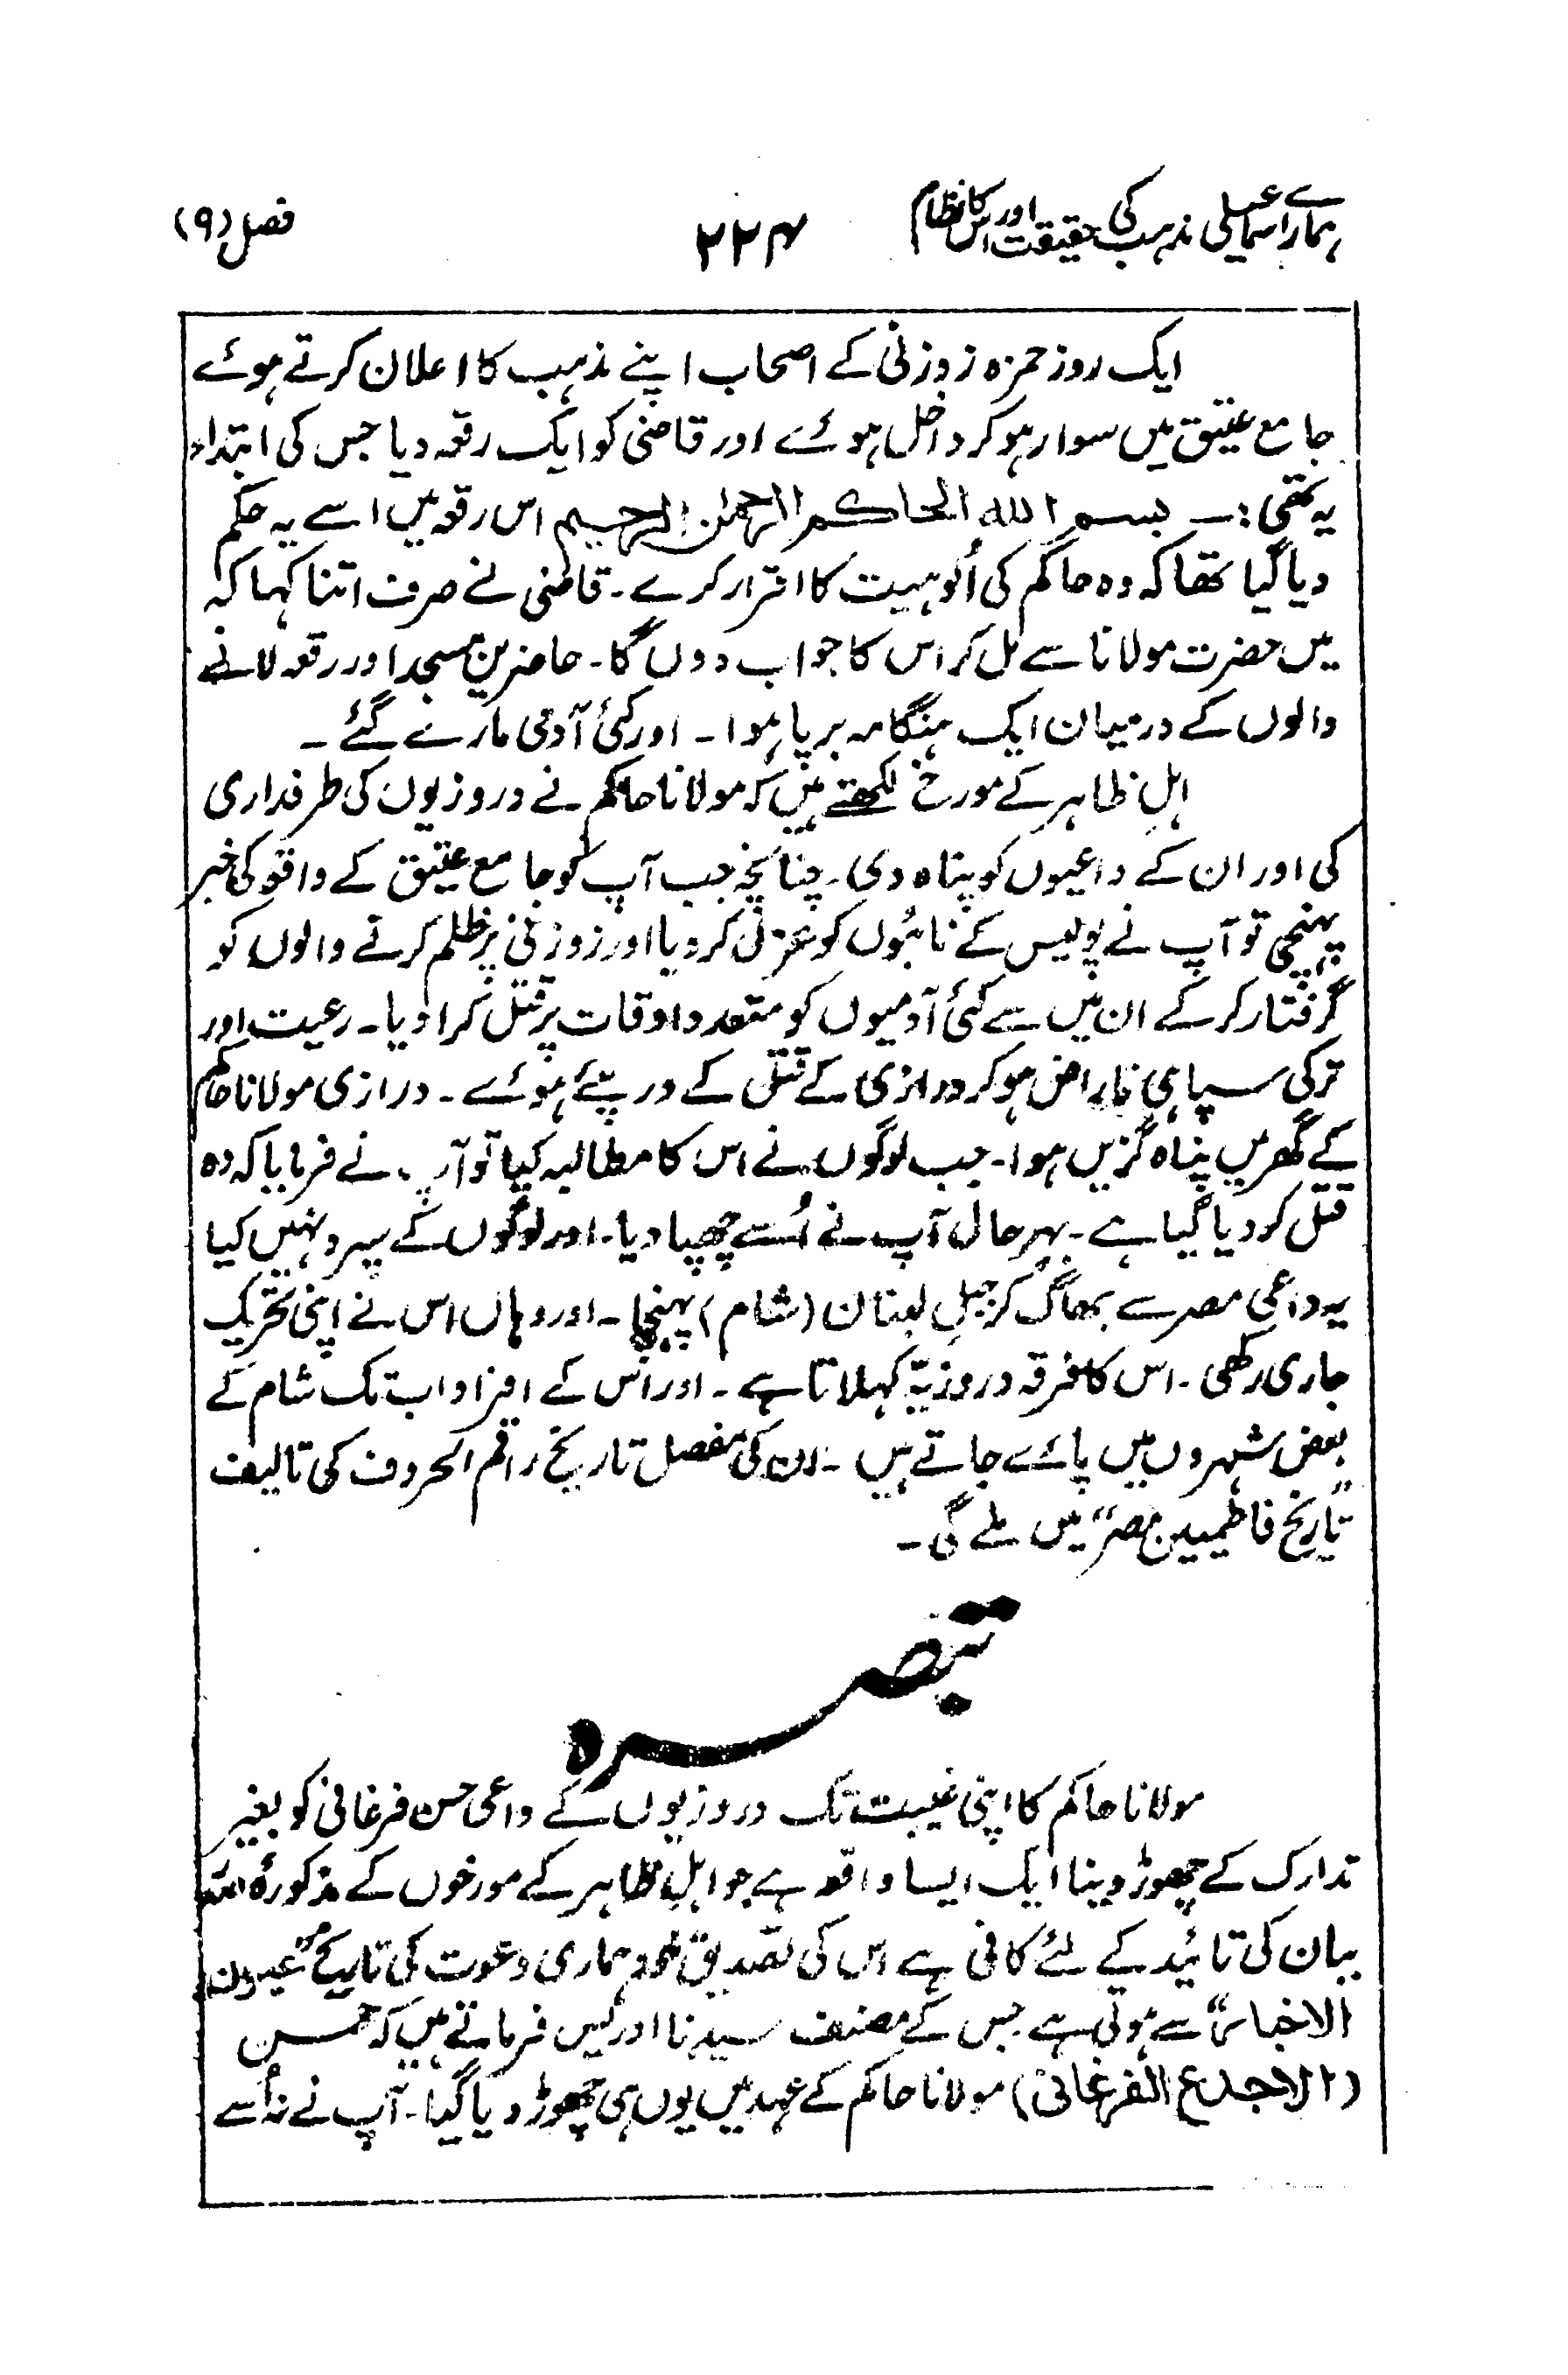 ہمارے اسماعیلی مذہب کی حقیقت اور اس کا نظام ۲۲۴ فصل (۹)
ایک روز حمزہ زوزنی کے اصحاب اپنے مذہب کا اعلان کرتے ہوئے
جامع عتیق میں سوار ہو کر داخل ہوئے اور قاضی کو ایک رقعہ دیا جس کی ابتداء
یہ تھی :۔ بسم اللہ الحاکم الرحمٰن الرحیم اس رقعہ میں اسے یہ حکم
دیا گیا تھا کہ وہ حاکم کی اُلوہیت کا اقرار کرے ۔ قاضی نے صرف اتنا کہا کہ
میں حضرت مولانا سے مل کر اس کا جواب دوں گا ۔ حاضرینِ مسجد اور رقعہ لانے
والوں کے درمیان ایک ہنگامہ برپا ہوا ۔ اور کئی آدمی مارے گئے ۔
اہلِ ظاہر کے مورخ لکھتے ہیں کہ مولانا حاکم نے دروزیوں کی طرفداری
کی اور ان کے داعیوں کو پناہ دی ۔ چنانچہ جب آپ کو جامع عتیق کے واقعہ کی خبر
پہنچی تو آپ نے پولیس کے نائبوں کو عزل کر دیا اور زوزنی پر ظلم کرنے والوں کو
گرفتار کر کے ان میں سے کئی آدمیوں کو متعدد اوقات پر قتل کرا دیا ۔ رعیت اور
ترکی سپاہی ناراض ہو کر درازی کے قتل کے درپئے ہوئے ۔ درازی مولانا حاکم
کے گھر میں پناہ گزیں ہوا ۔ جب لوگوں نے اس کا مطالبہ کیا تو آپ نے فرمایا کہ وہ
قتل کر دیا گیا ہے ۔ بہر حال آپ نے اُسے چھپا دیا ۔ اور لوگوں کے سپرد نہیں کیا
یہ داعی مصر سے بھاگ کر جبلِ لبنان (شام) پہنچا ۔ اور وہاں اس نے اپنی تحریک
جاری رکھی ۔ اس کا فرقہ دروزیّہ کہلاتا ہے ۔ اور اس کے افراد اب تک شام کے
بعض شہروں میں پائے جاتے ہیں ۔ ان کی مفصل تاریخ راقم الحروف کی تالیف
”تاریخ فاطمیین مصر“ میں ملے گی ۔
تبصرہ
مولانا حاکم کا اپنی غیبت تک دروزیوں کے داعی حسن فرغانی کو بغیر
تدارک کے چھوڑ دینا ایک ایسا واقعہ ہے جو اہلِ ظاہر کے مورخوں کے مذکورۂ
بیان کی تائید کے لئے کافی ہے اس کی تصدیق خود ہماری دعوت کی تاریخ ”عیون
الاخبار“ سے ہوتی ہے جس کے مصنف سیدنا ادریس فرماتے ہیں کہ حسن
(الاجدع الفرغانی) مولانا حاکم کے عہد میں یوں ہی چھوڑ دیا گیا ۔ آپ نے نہ اُسے